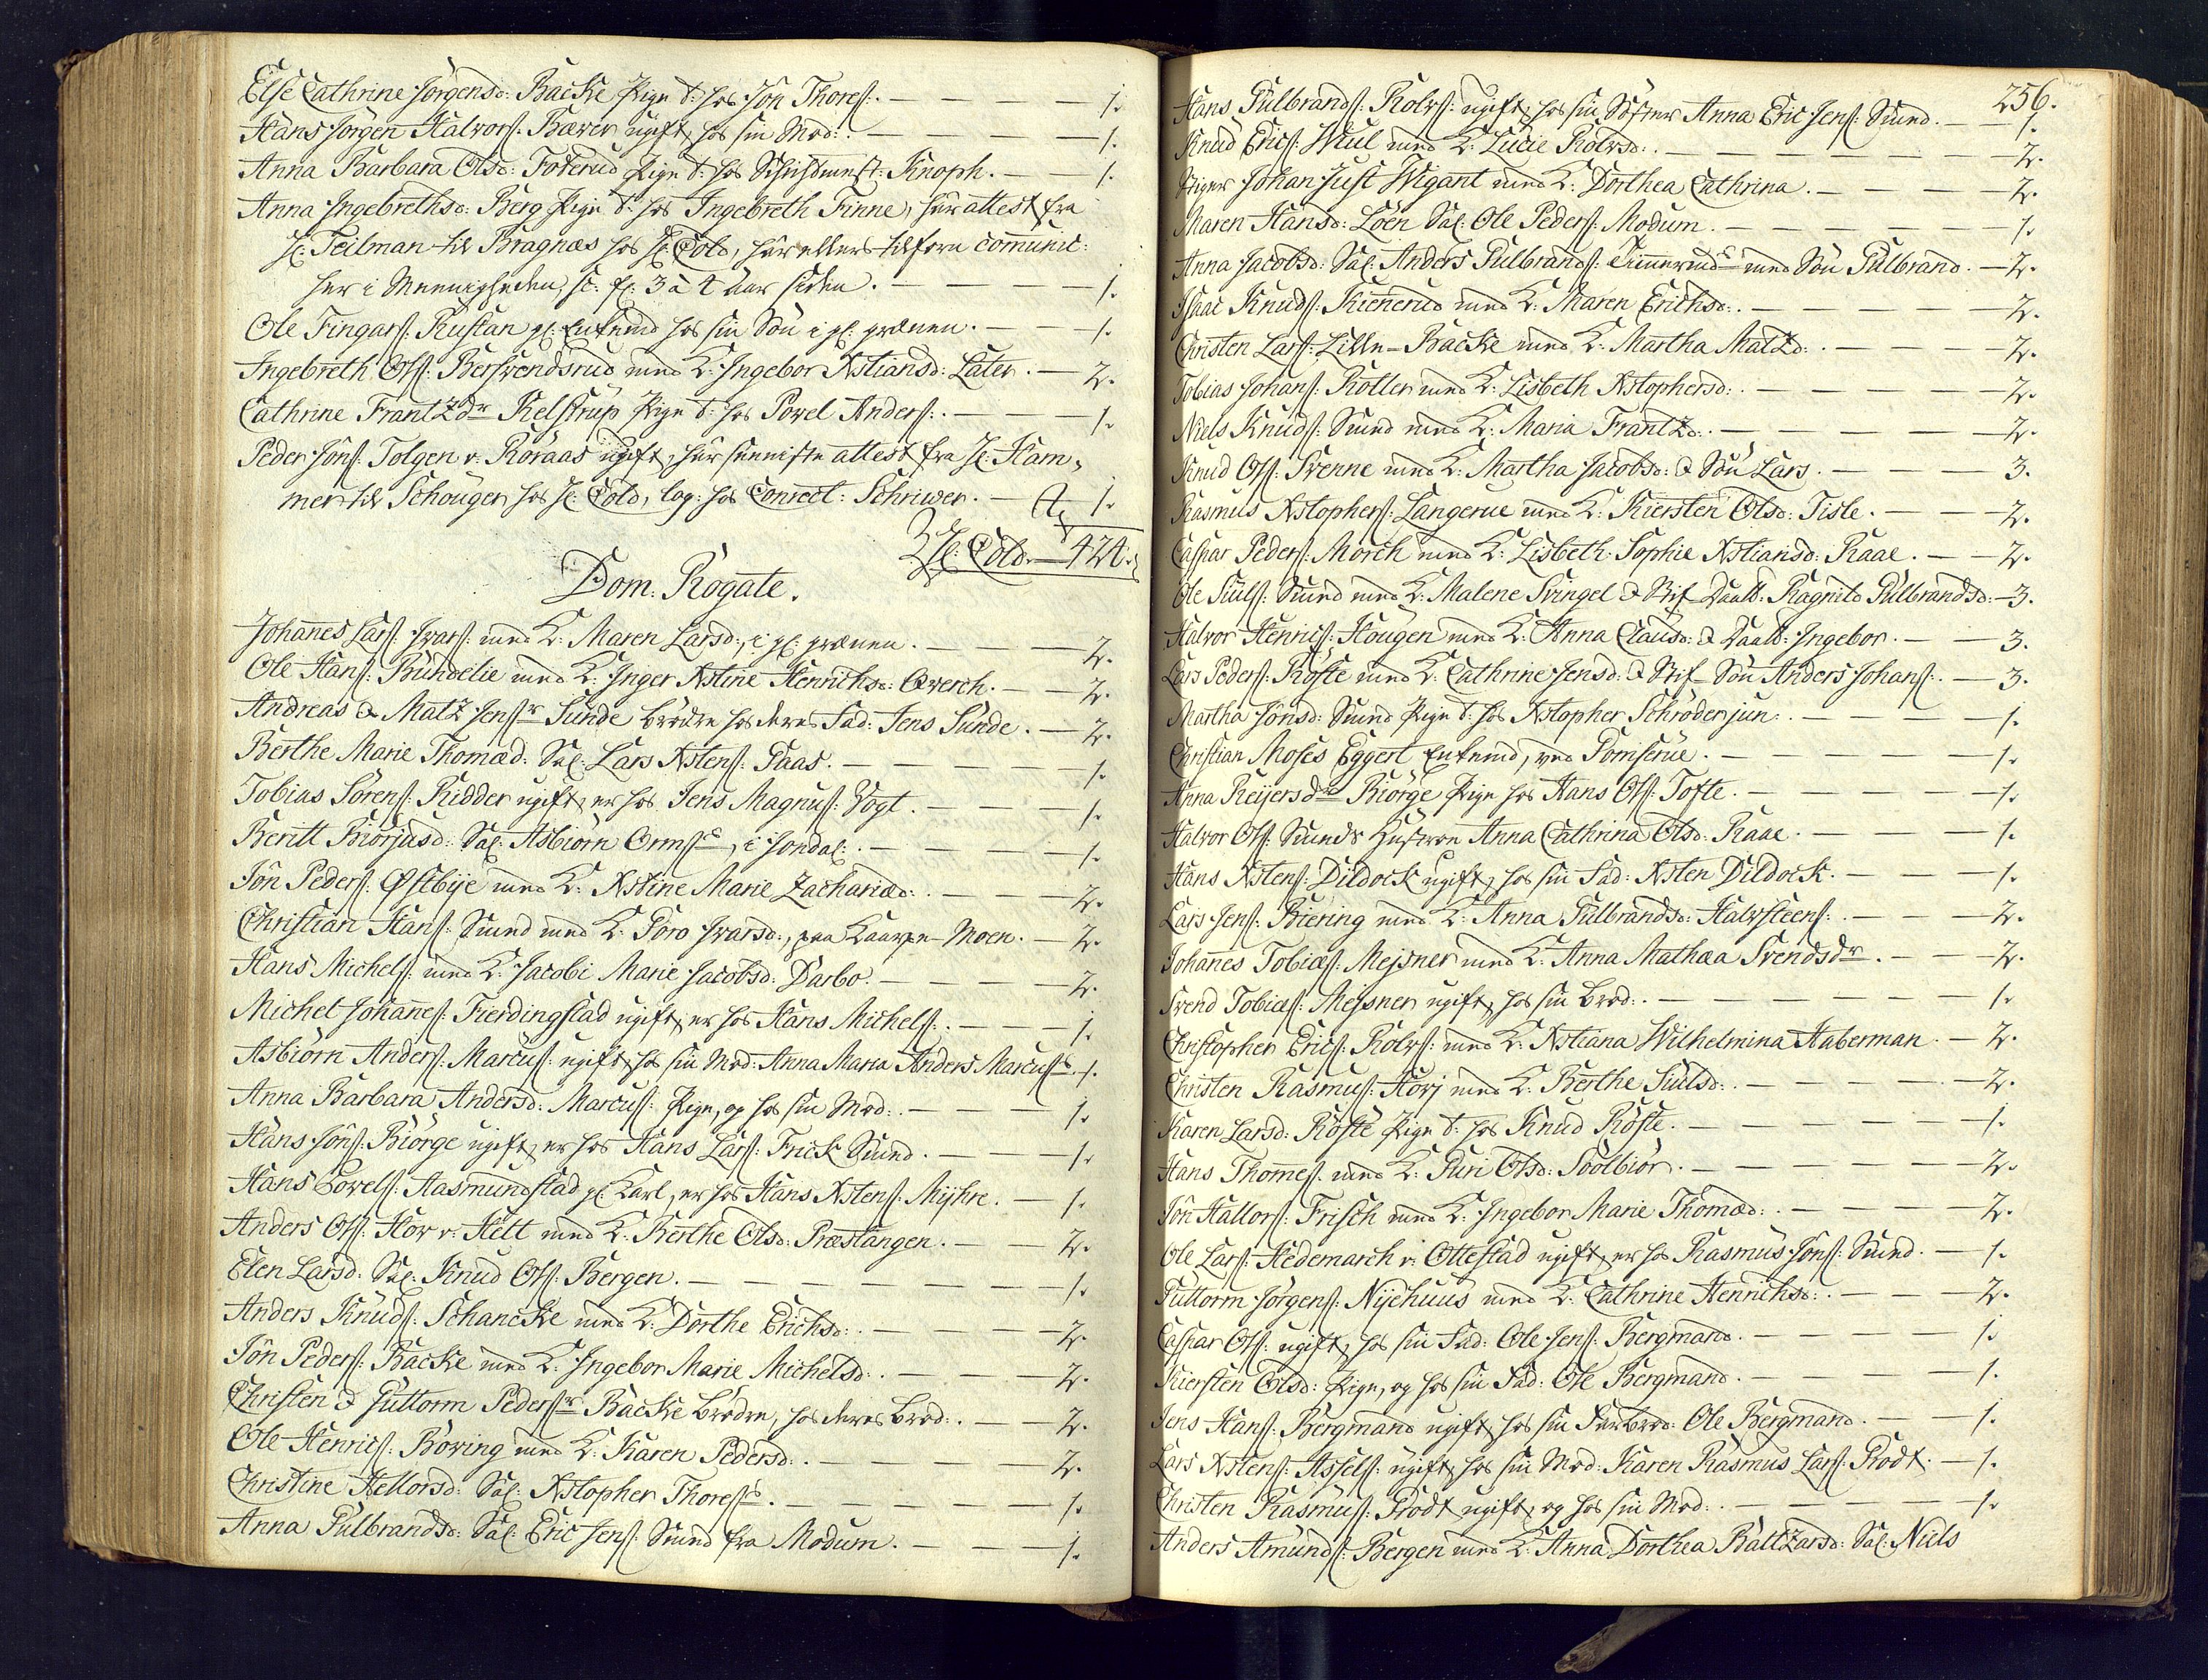 Else Cathrine Jörgensd: Backe Pige t: hos Jôn Thores:. — 1.
Hans Jörgen Halvors: Bæver ugift, hos sin Mod: — 1.
Anna Barbara Olsd: Foterud Pige t: hos Knoph. — 1.
Anna Ingebrethsd: Berg Pige t: hos Ingebreth Finne, har attest fra
H: Teilman til Bragnæs hos H: Cold, har ellers tilforn communic:
her i Meenigheden, 3 à 4 Aar siden. — 1.
Ole Fingars: Rustan gl: Enkemd hos sin Sön i gl: grænen. — 1.
Ingebreth Ols: Bersvendsrud med K: Ingebor Xstiansd: Later. — 2.
Cathrine Frantzdr Kelstrup Pige t: hos Povel Anders:. — 1.
Peder Jôns: Tolgen v: Röraas ugift, har seeniste attest fra H: Ham,
mer til Schouger hos H: Cold, log: hos Conrect: Schriwer. — 1.
H: Cold. — 424.
Dom: Rogate.
Johanes Lars: Ivars: med K: Maren Larsd:, i gl: grænen. — 2.
Ole Hans: Bundelie med K: Inger Xstine Henrichsd: Qverch. — 2.
Andreas & Matz Jensr Sunde brödre hos deres Fad: Jens Sunde. — 2.
Berthe Marie Thomæd: Sal: Lars Xstens: Paas. — 1.
Tobias Sörens: Ridder ugift, er hos Jens Magnus: Vogt. — 1.
Beritt Biörjusd: Sal: Asbiörn Orms:, i Jondal:. — 1.
Jôn Peders: Østbije med K: Xstine Marie Zachariæd:. — 2.
Christian Hans: Smed med K: Goro Ivarsd:, paa Kaarpe-Moen. — 2.
Hans Michels: med K: Jacobi Marie Jacobsd: Darbo. — 2.
Michel Johanes: Fierdingstad ugift, er hos Hans Michels:. — 1.
Asbiörn Anders: Marcus: ugift, hos sin Mod: Anna Maria Anders Marcus:. 1.
Anna Barbara Andersd: Marcus: Pige, og hos sin Mod:. — 1.
Hans Jôns: Biörge ugift, er hos Hans Lars: Frick Smed. — 1.
Hans Povels: Aasmundstad gl: Karl, er hos Hans Xstens: Mÿhre. — 1.
Anders Ols: Hov v: Hell med K: Berthe Olsd: Præstangen. — 2.
Elen Larsd: Sal: Knud Ols: Bergen. — 1.
Anders Knuds: Schancke med K: Dorthe Erichsd:. — 2.
Jôn Peders: Backe med K: Ingebor Marie Michelsd:. — 2.
Christen & Guttorm Pedersr Backe brödre, hos deres brod:. — 2.
Ole Henrics: Böring med K: Karen Pedersd:. — 2.
Christine Hellorsd: Sal: Xstopher Thores:. — 1.
Anna Gulbrandsd: Sal: Eric Jens: Smed fra Modum. — 1.
256.
Hans Gulbrands: Rolvs: ugift, hos sin Söster Anna Eric Jens: Smed. — 1.
Knud Erics: Wiul med K: Lucie Rolvsd:. — 2.
Stiger Johan Just Wigant med K: Dorthea Cathrina. — 2.
Maren Hansd: Löen Sal: Ole Peders: Modum. — 1.
Anna Jacobsd: Sal: Anders Gulbrands: med Sön Gulbrand. — 2.
Isaac Knuds: Kiennerud med K: Maren Erichsd:. — 2.
Christen Lars: Lille-Backe med K: Martha Matzd:. — 2.
Tobias Johans: Rotter med K: Lisbeth Xstophersd:. — 2.
Niels Knuds: Smed med K: Maria Frantzd:. — 2.
Knud Ols: Svenne med K: Martha Jacobsd: & Sön Lars. — 3.
Rasmus Xstophers: Langerue med K: Kiersten Olsd: Tisle. — 2.
Caspar Peders: Morch med K: Lisbeth Sophie Xstiansd: Raae. — 2.
Ole Siuls: Smed med K: Malene Svingel & Stif-Daatt: Ragnild Gulbrandsd: — 3.
Halvor Henrics: Hougen med K: Anna Clausd: & Daatt: Ingebor. — 3.
Lars Peders: Röste med K: Cathrine Jensd: & Stif-Sön Anders Johans:. — 3.
Martha Jônsd: Smed Pige t: hos Xstopher Schröder jun:. — 1.
Christian Moses Eggert Enkemd, ved Pomserüe. — 1.
Anna Reijersdr Biörge Pige hos Hans Ols: Tofte. — 1.
Halvor Ols: Smeds Hustroe Anna Cathrina Olsd: Raae. — 1.
Hans Xstens: Dildock ugift, hos sin Fad: Xsten Dildock. — 1.
Lars Jens: Biering med K: Anna Gulbrandsd: Halvsteens:. — 2.
Johanes Tobiæs: Mejsner med K: Anna Mathæa Svendsdr. — 2.
Svend Tobiæs: Mejsner ugift, hos sin brod:. — 1.
Christopher Erics: Rolvs: med K: Xstiana Wilhelmina Haberman. — 2.
Christen Rasmus: Horj med K: Berthe Siulsd:. — 2.
Karen Larsd: Röste Pige t: hos Knud Röste. — 1.
Hans Thomes: med K: Guri Olsd: Soolbiör. — 2.
Jôn Hallors: Frisch med K: Ingebor Marie Thomæd:. — 2.
Ole Lars: Hedemarch v: Ottestad ugift, er hos Rasmus Jôns: Smed. — 1.
Guttorm Jörgens: Nÿehuus med K: Cathrine Henrichsd:. — 2.
Caspar Ols: ugift, hos sin Fad: Ole Jens: Bergmand. — 1.
Kiersten Olsd: Pige, og hos sin Fad: Ole Bergmand. — 1.
Jens Hans: Bergmand ugift, hos sin Farbrod: Ole Bergmand. — 1.
Lars Xstens: Assels: ugift, hos sin Mod: Karen Rasmus Lars: Rodt. — 1.
Christen Rasmus: Rodt ugift, og hos sin Mod:. — 1.
Anders Amunds: Bergen med K: Anna Dorthea Baltzarsd: Sal: Niels